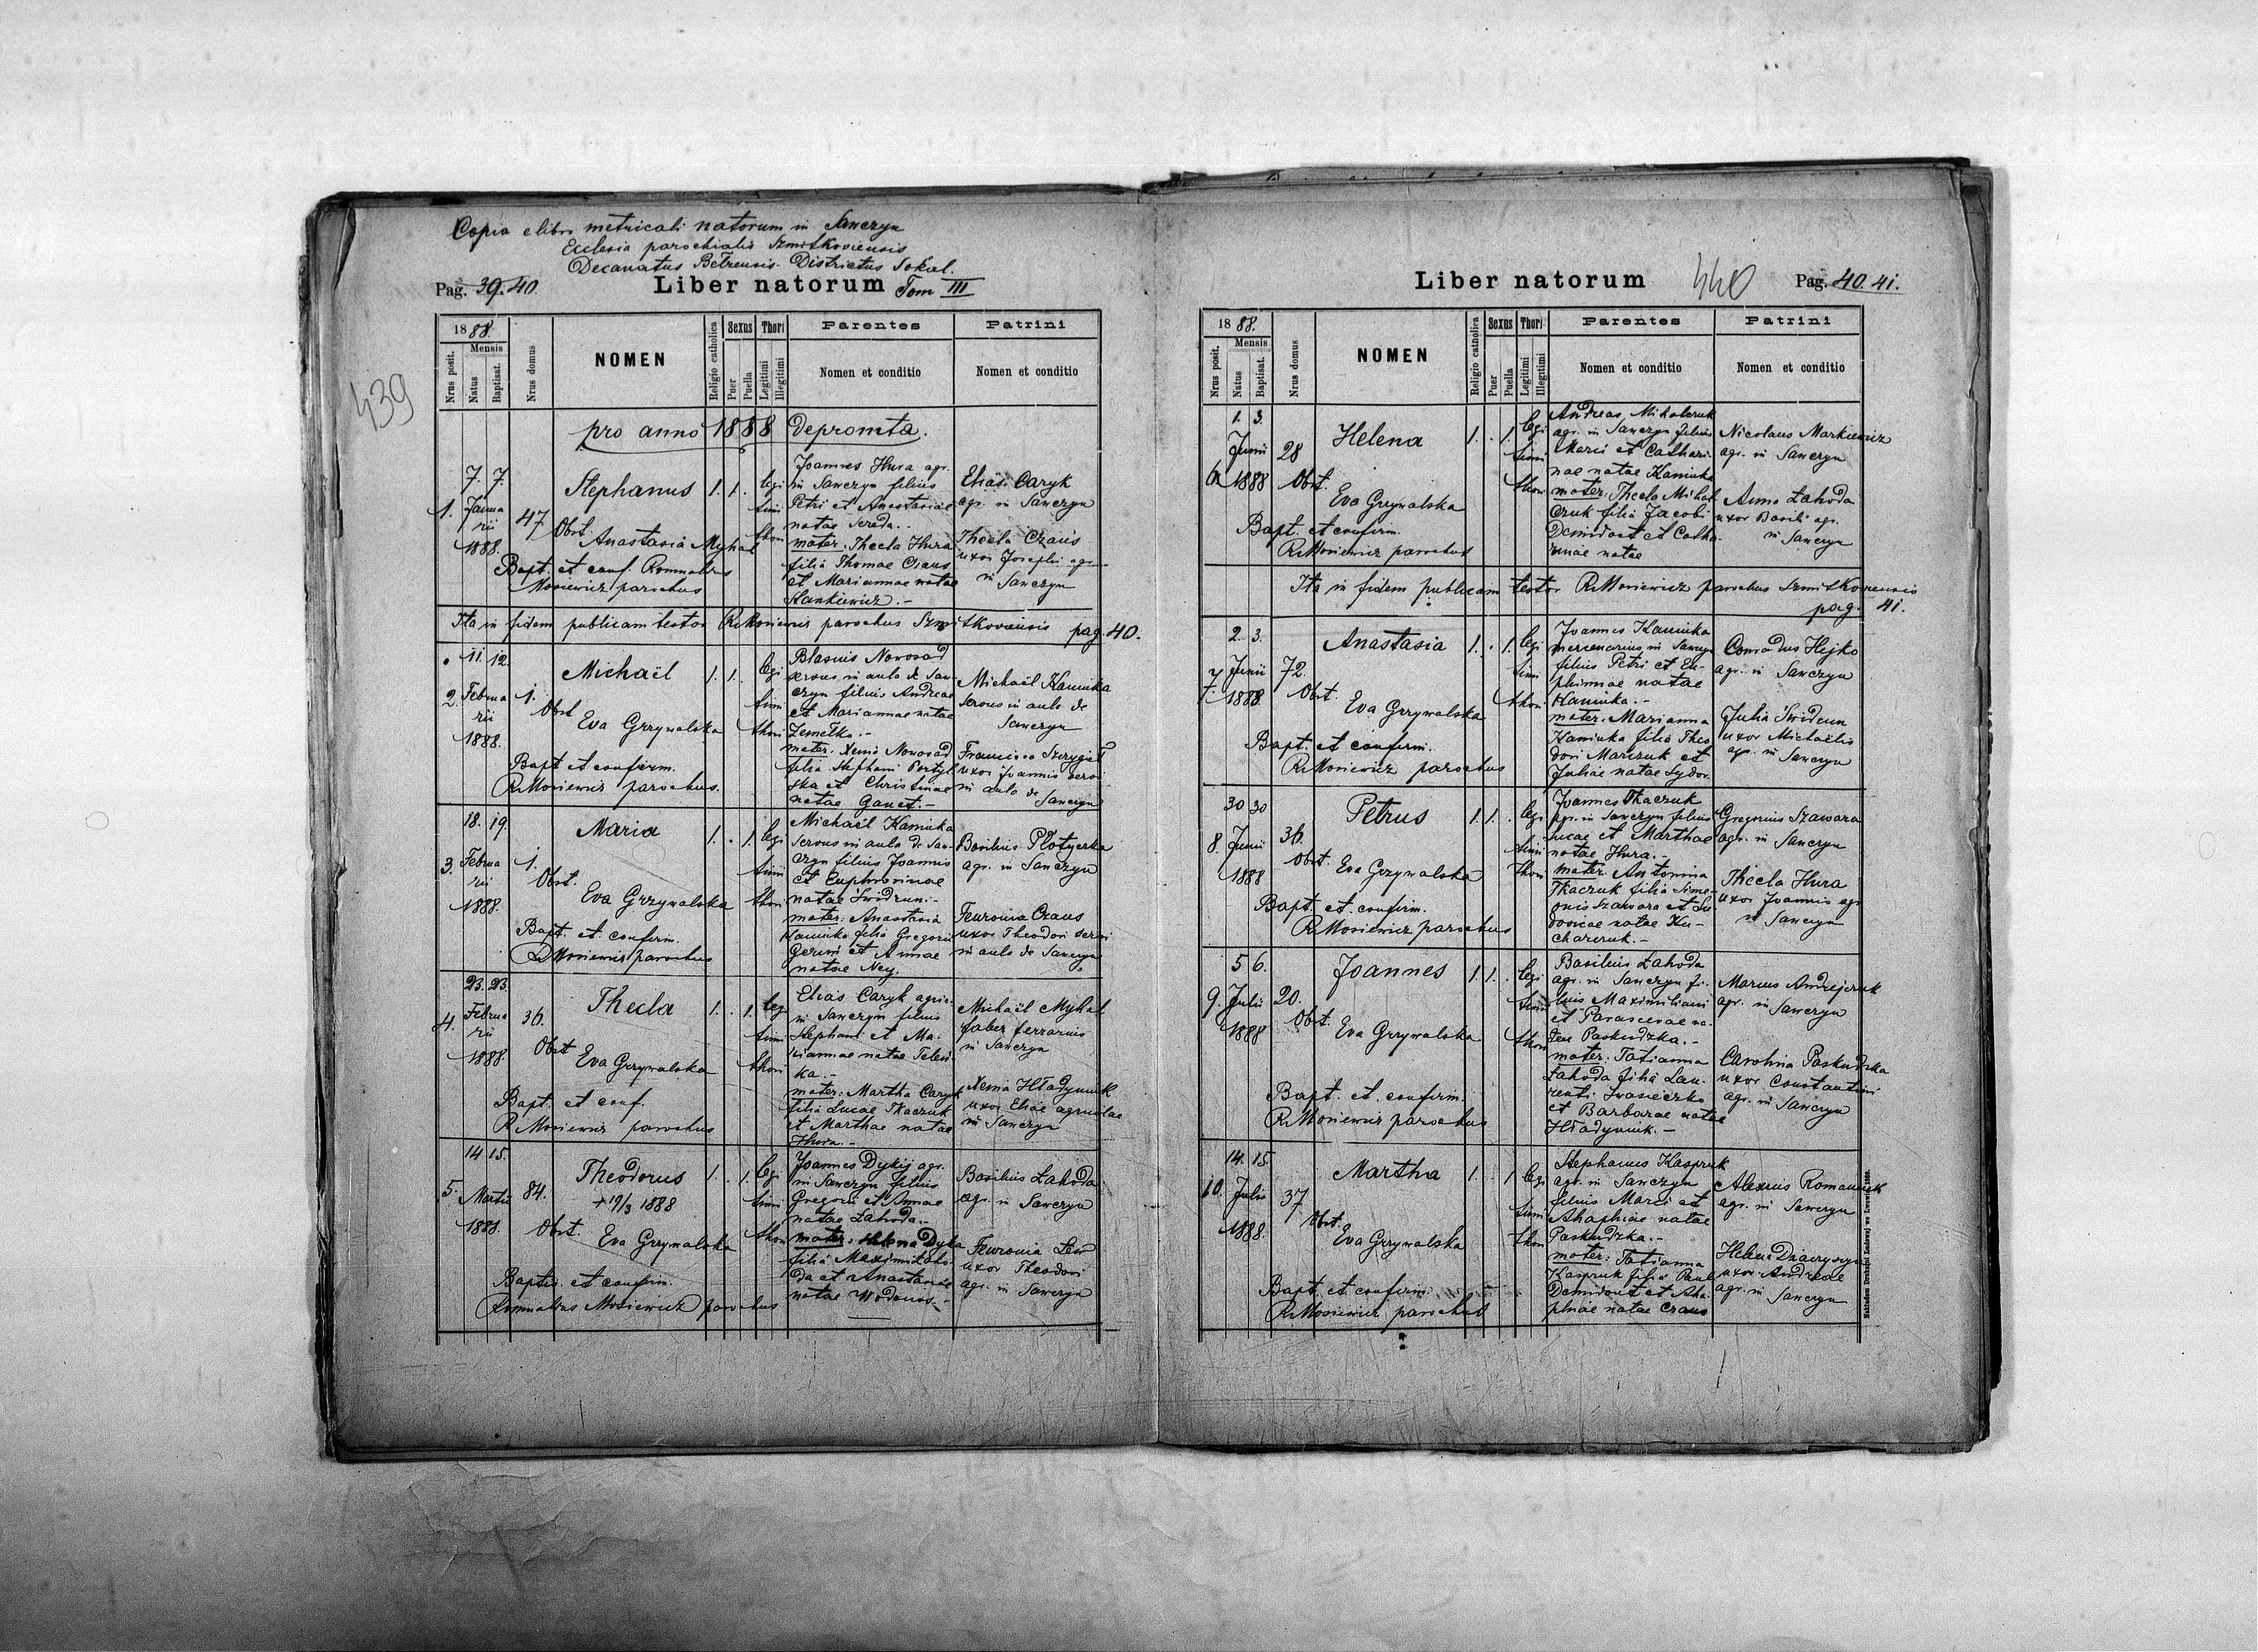 Copia e libro metricali natorum in Sawczyn
Ecclesia parochialis Szmitkoviensis
Decanatus Belzensis Districtus Sokal.
Pag. 39.40. Liber natorum Tom III
439
1888.
Mensis
Nrus posit.
Natus
Baptisat.
Nrus domus
NOMEN
Religio catholica
Sexus
Puer
Puella
Thori
Legitimi
Illegitimi
Parentes
Nomen et conditio
Patrini
Nomen et conditio
pro anno 1888 depromta.
1.
7. 7.
Janua
rii
1888.
47
Stephanus
1. 1.
legi
timi
thori
Obst. Anastasia Myhal
Bapt. et conf. Romualdus
Mosiewicz parochus
Joannes Hura agr.
in Sawczyn filius
Petri et Anastasiae
natae Sereda.
mater: Thecla Hura
filia Thomae Craus
et Mariannae natae
Stankiewicz.-
Elias Caryk
agr. in Sawczyn
Thecla Craus
uxor Josephi agr.
in Sawczyn
Ita in fidem publicam testor R. Mosiewicz parochus Szmitkoviensis pag. 40.
2.
11. 12.
Februa
rii
1888.
1.
Michaël
1. 1.
legi
timi
thori
Obst
Eva Grzywalska
Bapt et confirm.
R. Mosiewicz parochus.
Blasius Nowosad
servus in aula de Saw-
czyn filius Andreae
et Mariannae natae
Zemelko.-
mater: Xenia Nowosad
filia Stephani
et Christinae
natae Ganet.-
Michaël Kaminka
servus in aula de
Sawczyn
uxor Joannis servi
in aula de
Sawczyn
3.
18. 19.
Februa
rii
1888.
1.
Maria
1. . 1.
legi
timi
thori
Obst.
Eva Grzywalska
Bapt. et confirm.
R. Mosiewicz parochus
Michaël Kaminka
servus in aula de Saw-
czyn filius Joannis
et Euphrosinae
natae Swidrun.-
mater: Anastasia
Kaminka filia Gregorii
et Annae
natae Ney.
Basilius Plotycka
agr. in Sawczyn
Feuronia Craus
uxor Theodori servi
in aula de Sawczyn
4.
23. 23.
Februa
rii
1888.
36.
Thecla
1. . 1.
legi
timi
thori
Obst Eva Grzywalska
Bapt. et conf.
R. Mosiewicz parochus
Elias Caryk agric.
in Sawczyn filius
Stephani et Ma-
riannae natae
ka.-
mater: Martha Caryk
filia Lucae Tkaczuk
et Marthae natae
Hura.-
Michaël Myhal
faber ferrarius
in Sawczyn
Xenia Hladyniuk
uxor Eliae agricolae
in Sawczyn
5.
14 15.
Martii
1888.
84.
Theodorus
+ 19/3 1888
1. . 1.
legi
timi
thori
Obst. Eva Grzywalska
Baptis. et confirm.
Romualdus Mosiewicz parochus
Joannes Dykij agr.
in Sawczyn filius
Gregorii et Annae
natae Lahoda.-
mater: Helena Dyka
filia Maximi Laho-
da et Anastasiae
natae Wodonos.-
Basilius Lahoda
agr. in Sawczyn
Feuronia Lew
uxor Theodori
agr. in Sawczyn
Liber natorum 440 Pag. 40. 41.
1888.
Mensis
Nrus posit.
Natus
Baptisat.
Nrus domus
NOMEN
Religio catholica
Sexus
Puer
Puella
Thori
Legitimi
Illegitimi
Parentes
Nomen et conditio
Patrini
Nomen et conditio
6
1. 3.
Junii
1888
28
Helena
1. . 1.
legi
timi
thori
Obst.
Eva Grzywalska
Bapt. et confirm.
R. Mosiewicz parochus
Andreas Mihalczuk
agr. in Sawczyn filius
Marii et Cathari-
nae natae Kaminka
mater: Thecla Mihal-
czuk filia Jacobi
et Catha-
rinae natae
Nicolaus Markiewicz
agr. in Sawczyn
Anna Lahoda
uxor Basili agr.
in Sawczyn
Ita in fidem publicam testor R. Mosiewicz parochus Szmitkoviensis
pag. 41.
7.
2. 3.
Junii
1888.
72.
Anastasia
1. . 1.
legi
timi
thori
Obst.
Eva Grzywalska
Bapt. et confirm.
R. Mosiewicz parochus
Joannes Kaminka
mercenarius in Sawczyn
filius Petri et Eu-
phimiae natae
Kaminka.-
mater: Marianna
Kaminka filia Theo
dori Marczuk et
Juliae natae Sydor.
Conradus Hejko
agr. in Sawczyn
Julia Swidrun
uxor Michaëlis
agr. in Sawczyn
8.
30 30
Junii
1888
36.
Petrus
1. 1. .
legi
timi
thori
Obst. Eva Grzywalska
Bapt. et. confirm.
R. Mosiewicz parochus
Joannes Tkaczuk
agr. in Sawczyn filius
Lucae et Marthae
natae Hura.-
mater: Antonina
Tkaczuk filia Sime-
onis Szawara et Lu-
dovicae natae Ku-
charczuk.-
Gregorius Szawara
agr. in Sawczyn
Thecla Hura
uxor Joannis agr
in Sawczyn
9.
5 6.
Julii
1888
20.
Joannes
1. 1. .
legi
timi
thori
Obst. Eva Grzywalska
Bapt. et. confirm.
R. Mosiewicz parochus
Basilius Lahoda
agr. in Sawczyn fi-
lius Maximiliani
et Parascevae na-
tae Paskudzka.-
mater: Tatianna
Lahoda filia Lau-
renti Iwasieczko
et Barbarae natae
Hladyniuk.-
Marius Andrejczuk
agr. in Sawczyn
Carolina Paskudzka
uxor Constantini
agr. in Sawczyn
10.
14. 15.
Julii
1888.
37
Martha
1. . 1
legi
timi
thori
Obst.
Eva Grzywalska
Bapt. et. confirm.
R. Mosiewicz parochus
Stephanus Kaspruk
agr. in Sawczyn
filius Marci et
Ahaphiae natae
Paskudzka.-
mater: Tatianna
Kaspruk filia Pauli
et Aha-
phiae natae Craus
Alexius Romaniuk
agr. in Sawczyn
Helena
uxor Andreae
agr. in Sawczyn
Nakładem Drukarni Ludowej we Lwowie